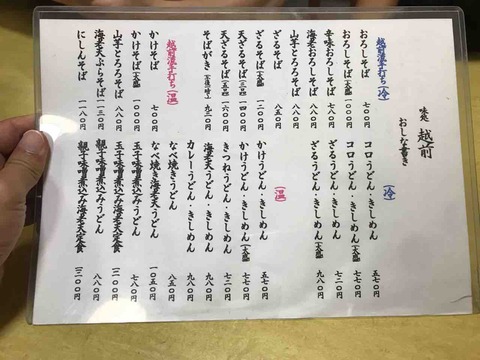 味処 越前
おしな書き
(冷)
おろしそば 七〇〇円
おろしそば(大盛) 一〇〇〇円
辛味おろしそば
海老おろしそば
山芋とろろそば 八八〇円
ざるそば 八五〇円
ざるそば(大盛) 一二〇〇円
天ざるそば
天ざるそば
そばがき 九三〇円
(温)
かけそば 七〇〇円
かけそば(大盛) 一〇〇〇円
山芋とろろそば 八八〇円
海老天ぷらそば 一一三〇円
にしんそば 一一八〇円
(冷)
コロうどん・きしめん 五七〇円
コロうどん・きしめん(大盛) 七七〇円
ざるうどん・きしめん 七二〇円
ざるうどん・きしめん(大盛) 九八〇円
(温)
かけうどん・きしめん 五七〇円
かけうどん・きしめん(大盛) 七七〇円
きつねうどん・きしめん 七二〇円
海老天うどん・きしめん 九八〇円
カレーうどん・きしめん 八八〇円
なべ焼きうどん 八五〇円
なべ焼き海老天うどん 一〇五〇円
玉子味噌煮込みうどん 七八〇円
玉子味噌煮込み海老天定食 一二〇〇円
親子味噌煮込みうどん 八八〇円
親子味噌煮込み海老天定食 一三〇〇円